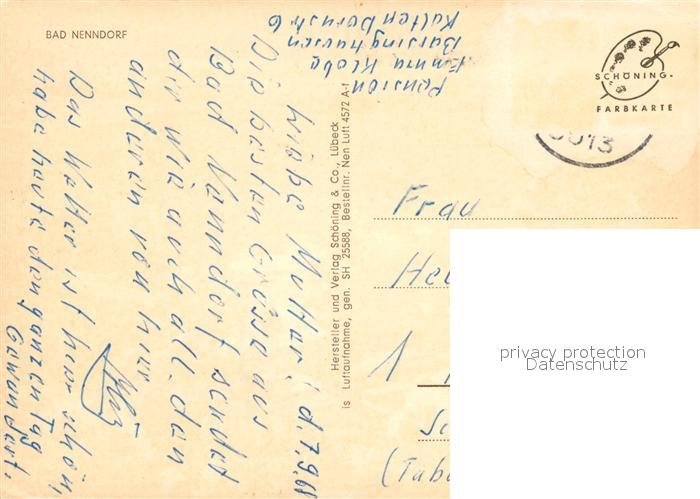 BAD NENNDORF
Pension
Emma Klobe
Barsinghausen
Kaltenbornstr 6
d. 7.9.68
Liebe Mutter!
Die besten Grüsse aus
Bad Nenndorf sendet
dir wie auch all. den
anderen von hier
Das Wetter ist hier schön,
habe heute den ganzen Tag
Gewandert.
Hersteller und Verlag Schöning & Co., Lübeck
is Luftaufnahme, gen. SH 25588, Bestellnr. Nen Luft 4572 A-f
SCHÖNING-
FARBKARTE
3013
Frau
He
1
(Tab
privacy protection
Datenschutz